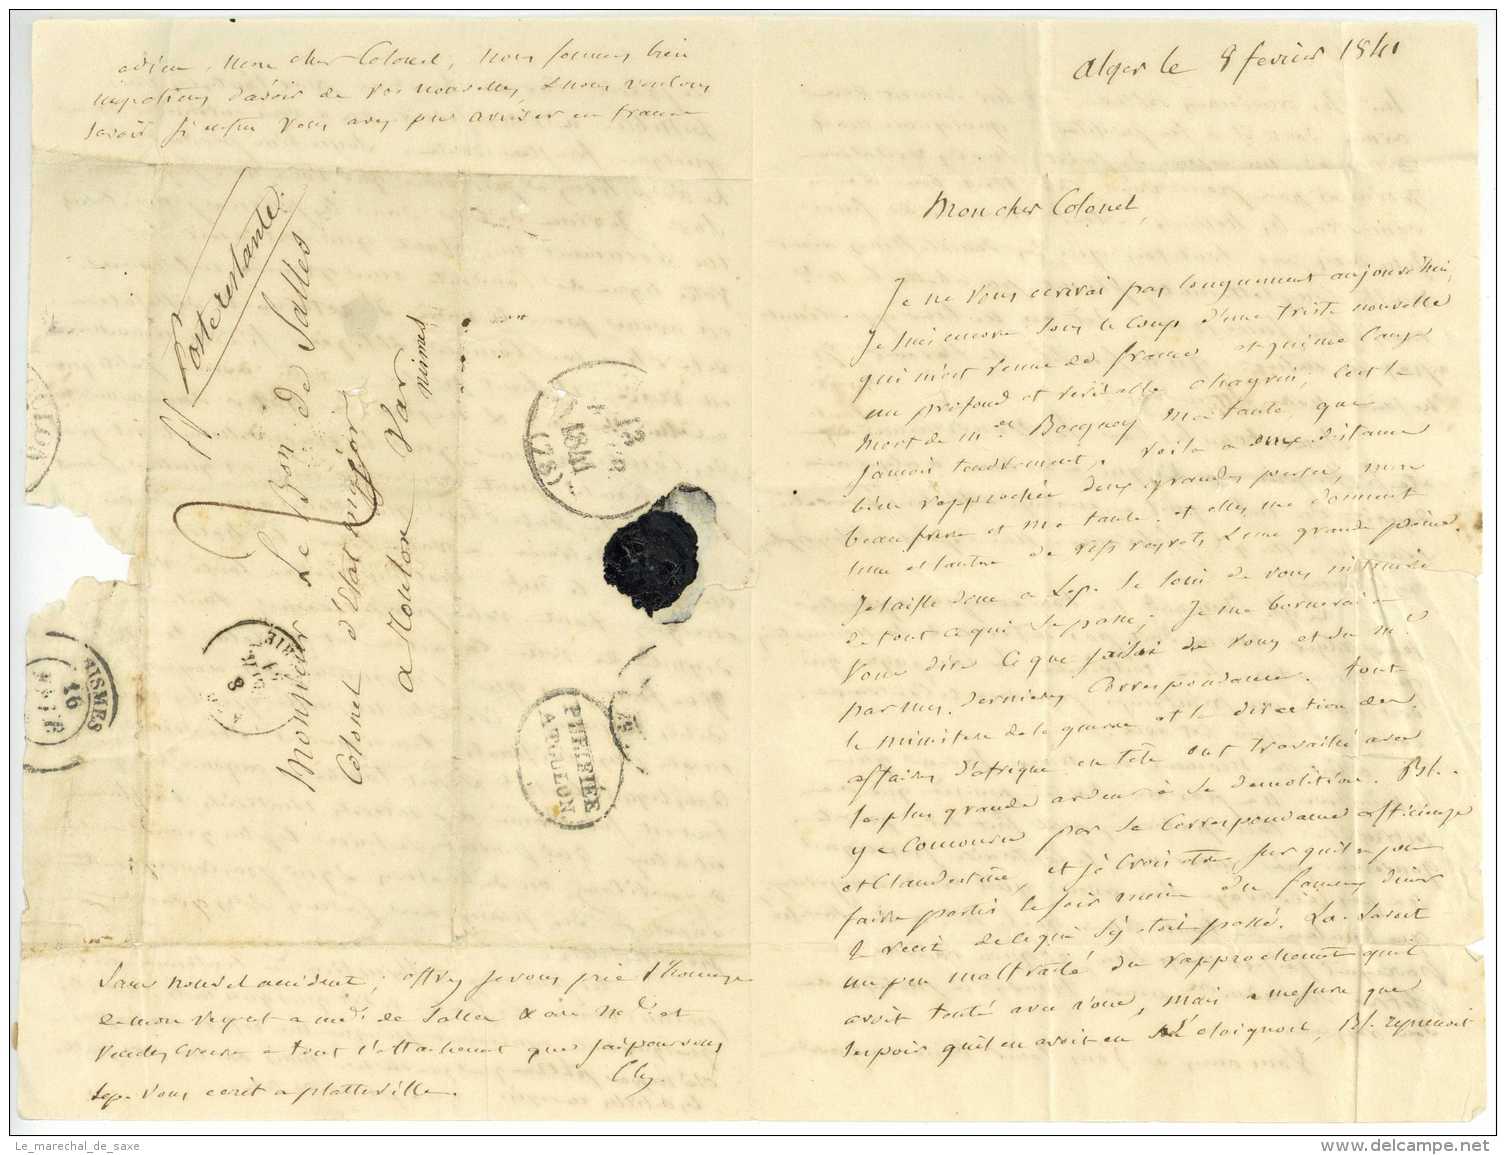 Alger le 8 fevrier 1841
Mon cher Colonel,
Je ne vous ecrirai pas longuement aujourd'hui,
je suis encore sous le coup d'une triste nouvelle
qui m'est venue de france et qui me cause
un profond et veritable chagrin; c'est la
mort de me Becquey ma tante que
j'aimais tendrement. voila a une distance
bien rapprochée deux grandes pertes, mon
beau frere et ma tante. et elles me donnent
l'une et l'autre de vifs regrets & une grande peine.
Je laisse donc a Lep. le soin de vous instruire
de tout ce qui se passe; Je me bornerai a
vous dire ce que j'ai de vous et du ml
par mes dernieres correspondances. tout
le ministere de la guerre et la direction des
affaires d'afrique en tête ont travaillé avec
la plus grande ardeur à la demolition. Bl.
y a concouru par sa correspondance officieuse
et clandestine, et je crois être sur qu'il a pu
faire partir le soir meme du fameux diner
le recit de ce qui s'y etoit passé. La. savoit
un peu maltraité du rapprochement qu'il
avoit tenté avec vous, mais a mesure que
l'espoir qu'il en avoit eu s'eloignoit, Bl. reprenoit
adieu, mon cher Colonel, nous sommes bien
impatiens d'avoir de vos nouvelles, & nous voulons
savoir si enfin vous avez pu arriver en france
sans nouvel accident; offrez je vous prie l'hommage
de mon respect a made de Salles & au ml et
veuillez croire a tout l'attachement que j'ai pour vous
Lep. vous ecrit a platteville.
Poste restante
Monsieur Le Bon de Salles
Colonel d'Etat major
a Toulon Var
nimes
13
1841
(78)
PURIFIÉE
A TOULON
8
16
Le_marechal_de_saxe
delcampe.net